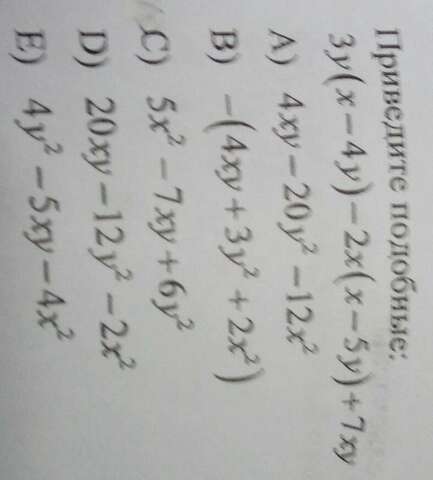 Приведите подобные:
3y(x − 4y) − 2x(x − 5y) + 7xy
A) 4xy − 20y² − 12x²
B) −(4xy + 3y² + 2x²)
C) 5x² − 7xy + 6y²
D) 20xy − 12y² − 2x²
E) 4y² − 5xy − 4x²